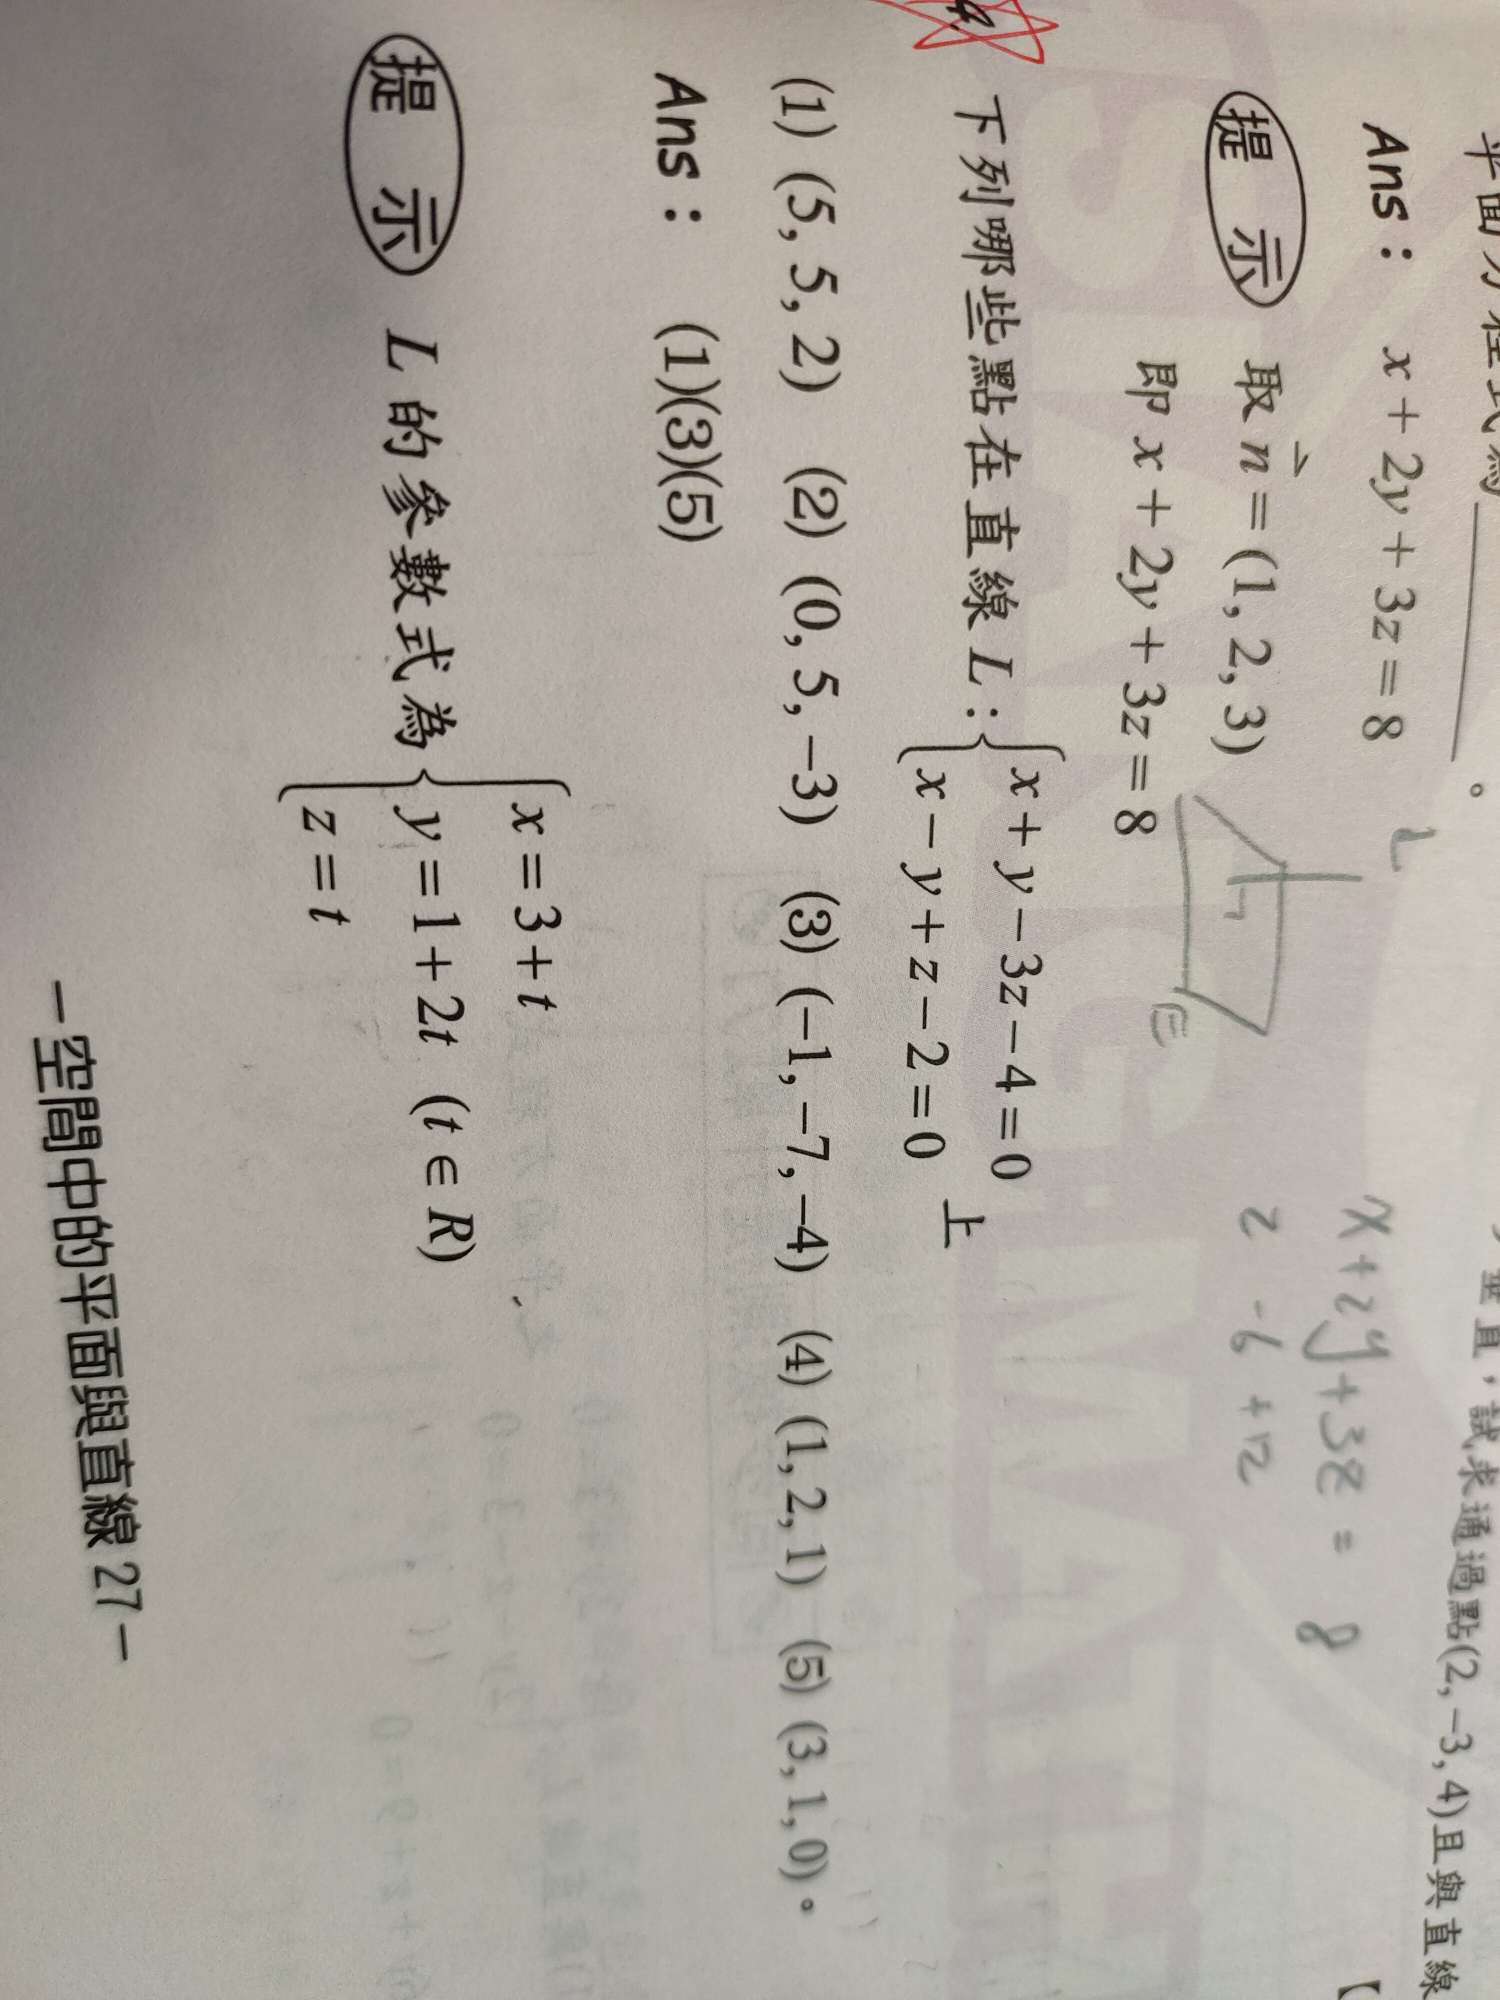 垂直，試求通過點(2, −3, 4)且與直線
平面方程式為________。
Ans： x + 2y + 3z = 8
x + 2y + 3z = 8
2 −6 +12
提示 取 n⃗ = (1, 2, 3)
即 x + 2y + 3z = 8
E
下列哪些點在直線 L：{ x + y − 3z − 4 = 0
x − y + z − 2 = 0 上
(1) (5, 5, 2) (2) (0, 5, −3) (3) (−1, −7, −4) (4) (1, 2, 1) (5) (3, 1, 0)。
Ans： (1)(3)(5)
提示 L 的參數式為 { x = 3 + t
y = 1 + 2t (t ∈ R)
z = t
－空間中的平面與直線 27－